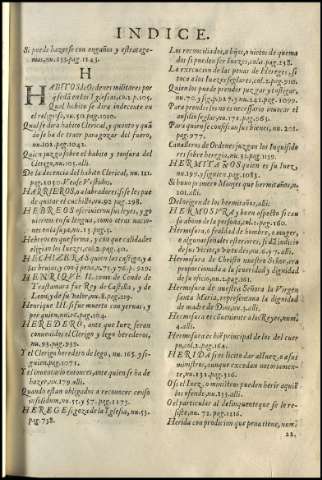 INDICE.
Si puede hazerse con engaños y estratage-
mas, nu. 233. pag. 1243.
H
HABITOS de Ordenes militares por
q está en las Iglesias, co. 2. p. 105.
Qual habito se dira indecente en
el religioso, nu. 51. pag. 1010.
Qual se dirá habito Clerical, y quanto y quã
do se ha de traer para gozar del fuero,
nu. 102. pag. 1042.
Quien juzga sobre el habito y tonsura del
Clerigo, nu. 105. alli.
De la decencia del habito Clerical, nu. 111.
pag. 1050. Vease Vestidos.
HARRIEROS, o a labradores si se les pue
de quitar el cuchillo, nu. 92. pag. 298.
HEBREOS observaron sus leyes, y go
vierno en su lengua, como otras nacio-
nes nota 50. pa. 13. pag. 5.
Hebreos en que forma, y con que calidades
eligian los Iuezes, col. 2. pag. 40.
HECHIZERAS quien las castiga, y a
las bruxas, y con q pena, 75. y 76. p. 1202
HENRIQUE II. como de Conde de
Trastamara fue Rey de Castilla, y de
Leon, y de su valor, nu. 8. pag. 119.
Henrique III. si fue muerto con yervas, y
por quien, nu. 104. pag. 60.
HEREDERO, ante que Iuez seran
convenidos el Clerigo y lego herederos,
nu. 93. pag. 939.
Y el Clerigo heredero de lego, nu. 165. y si-
guien. pag. 1071.
Y el inventario entonces, ante quien se ha de
hazer, nu. 179. alli.
Quando estan obligados a reconocer censo
in solidum, nu. 55. y 57. pag. 1173.
HEREGE si goza de la Iglesia, nu. 53.
pag. 738.
Los reconciliados, o hijos, o nietos de quema
dos si pueden ser Iuezes, cola. pag. 238.
La execucion de las penas de Hereges, si
toca a los Iuezes seglares, col. 2. pag. 210.
Quien los puede prender juzgar y castigar,
nu. 70. y sig. p. 927. y nu. 241. pag. 1099.
Para prenderlos no es necessario invocar el
auxilio seglar, nu. 171. pag. 063.
Para quanto se confiscan sus bienes, nu. 202.
pag. 977.
Cavalleros de Ordenes juzgan los Inquisido
res sobre heregia, nu. 32. pag. 1159.
HERMITAÑOS quien es su Iuez,
nu. 197. y siguien. pag. 1083.
Si huvo primero Monges que hermitaños, n.
201. alli.
Del origen de los hermitaños, alli.
HERMOSURA y buen aspecto se cau
sa abona de la persona, col. 2. pag. 160.
Hermosura, o fealdad de hombre, o muger,
o algunas señales esteriores, si dã indicio
de sus vicios, y virtudes, nu. 6. y 7. alli.
Hermosura de Christo nuestro Señor, era
proporcionada a la severidad y dignidad
de su oficio, nu. 2. pag. 161.
Hermosura de nuestra Señora la Virgen
santa Maria, representava la dignidad
de madre de Dios, nu. 3. alli.
Hermosura es cõveniente a los Reyes, num.
4. alli.
Hermosura es biẽ principal de los del cuer
po, col. 2. pag. 164.
HERIDA si es licito dar al Iuez, o a sus
ministros, aunque excedan notoriamen-
te, nu. 131. pag. 316.
Os el Iuez, o ministros pueden herir a qui�les
les ofende, nu. 133. alli.
O el particular al delinquente que se le re-
siste, nu. 72. pag. 1216.
Herida con prodicion que pena tiene, num.
22.